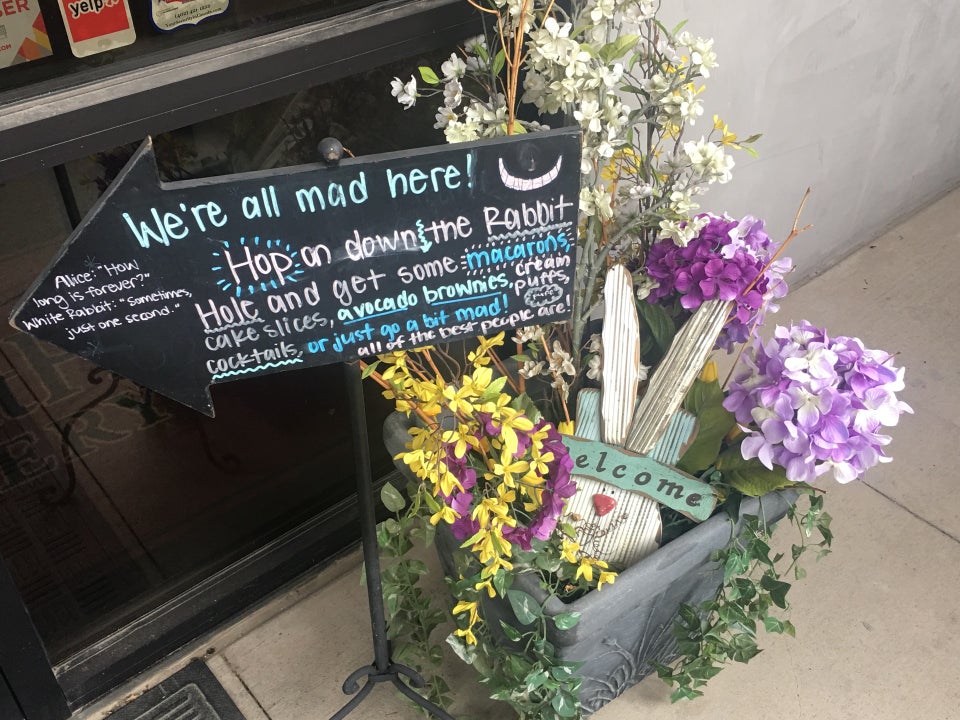 yelp
We're all mad here!
Hop on down the Rabbit
Hole and get some macarons,
cake slices, avocado brownies, cream
puffs,
cocktails, or just go a bit mad!
all of the best people are!
Alice: "How
long is forever?"
White Rabbit: "Sometimes,
just one second."
elcome